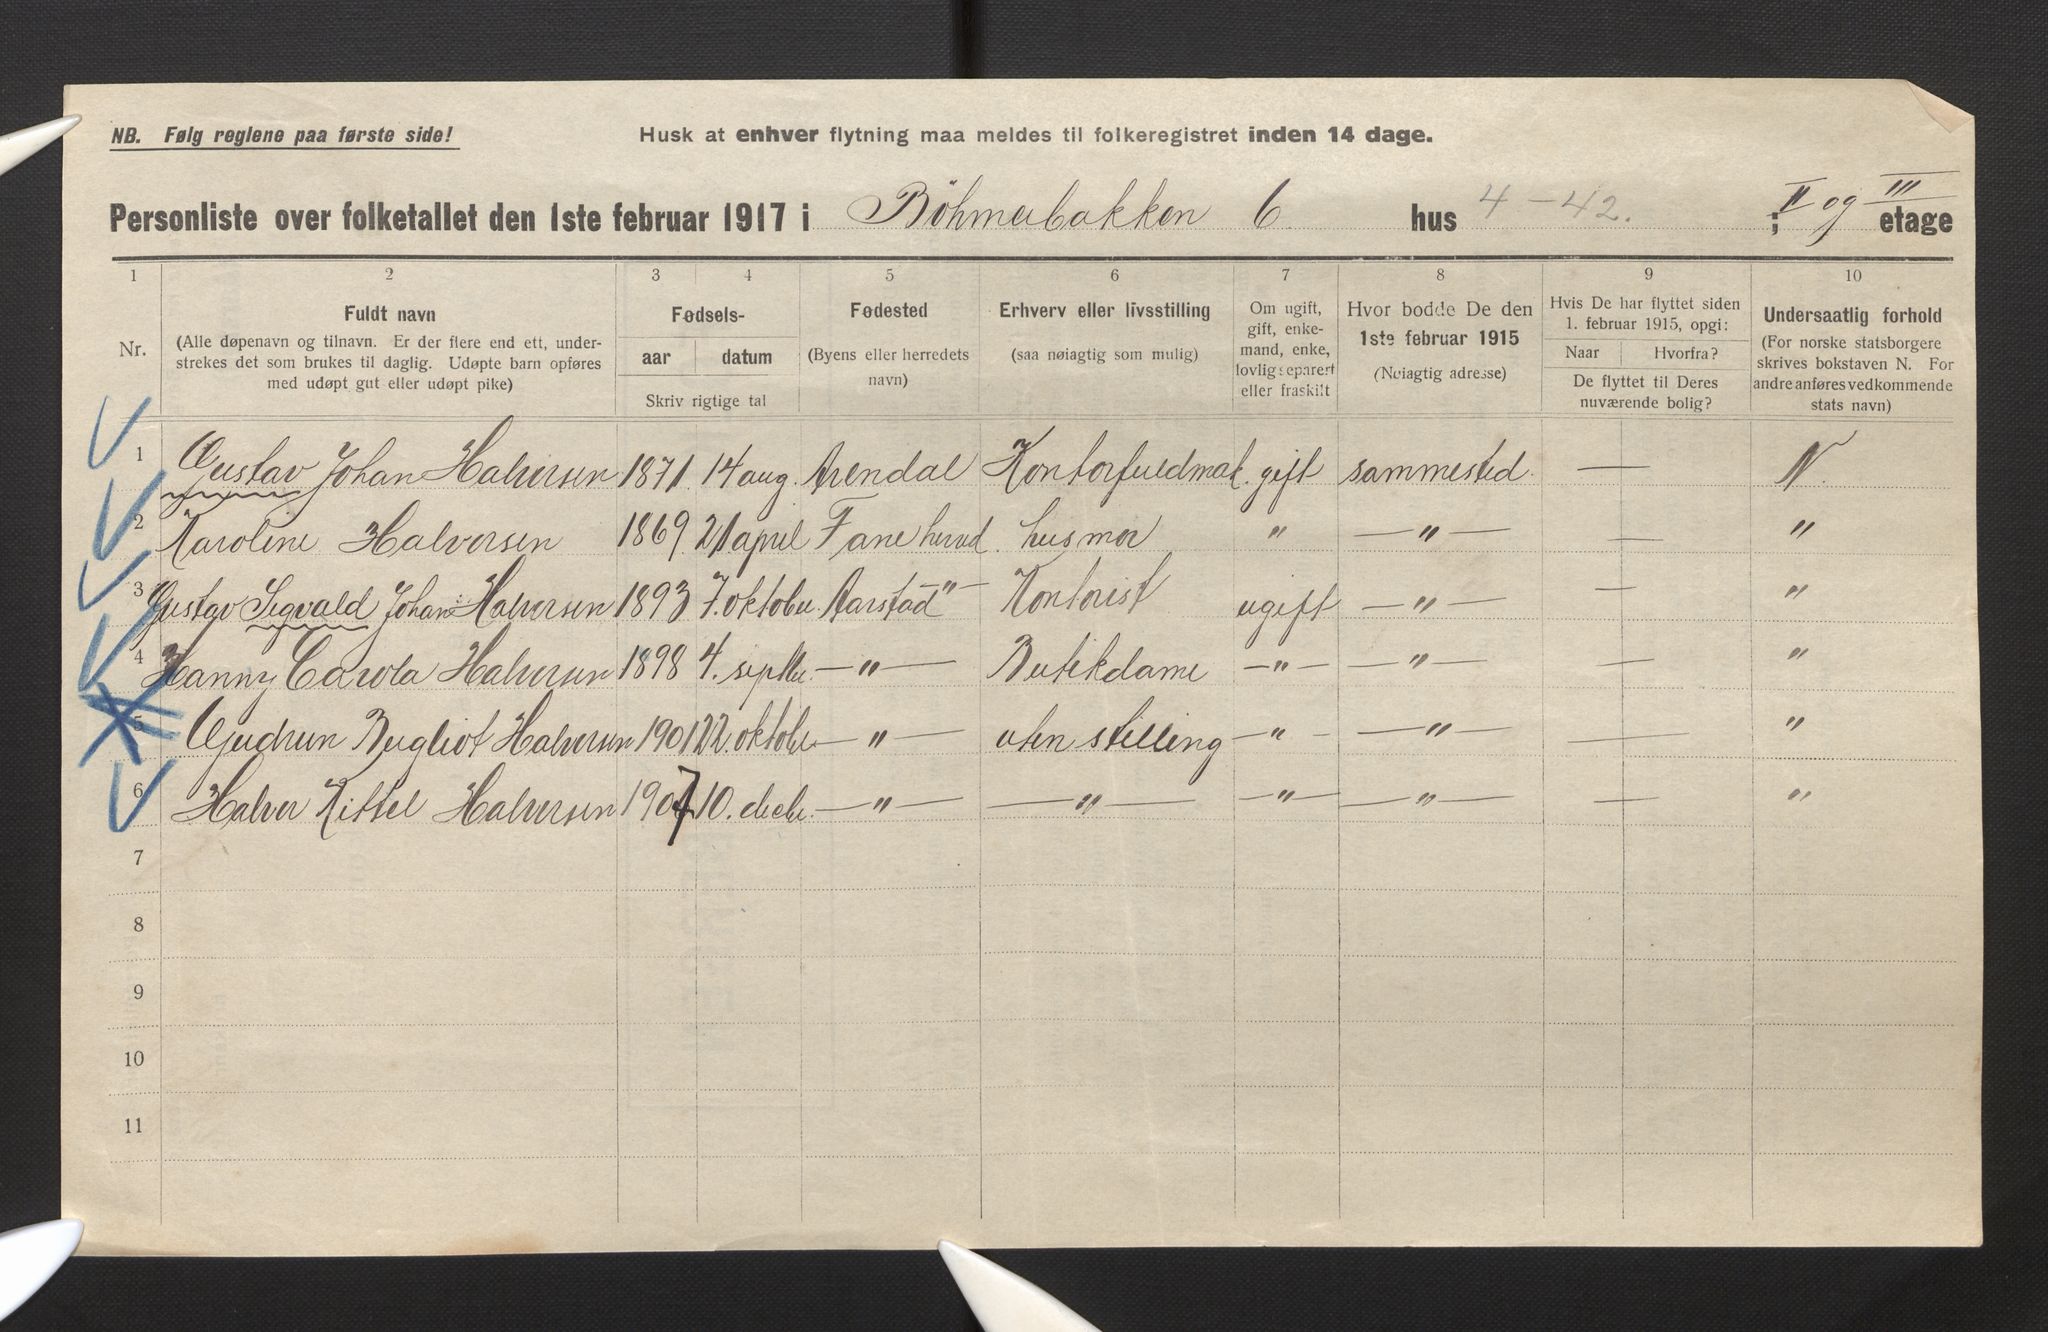 NB. Følg reglene paa første side! Husk at enhver flytning maa meldes til folkeregistret inden 14 dage.
Personliste over folketallet den 1ste februar 1917 i Böhmerbakken 6 hus 4-42. ; II og III etage
1 2 3 4 5 6 7 8 9 10
Nr.
Fuldt navn
(Alle døpenavn og tilnavn. Er der flere end ett, under-
strekes det som brukes til daglig. Udøpte barn opføres
med udøpt gut eller udøpt pike)
Fødsels-
aar datum
Skriv rigtige tal
Fødested
(Byens eller herredets
navn)
Erhverv eller livsstilling
(saa nøiagtig som mulig)
Om ugift,
gift, enke-
mand, enke,
lovlig separert
eller fraskilt
Hvor bodde De den
1ste februar 1915
(Nøiagtig adresse)
Hvis De har flyttet siden
1. februar 1915, opgi:
Naar Hvorfra?
De flyttet til Deres
nuværende bolig?
Undersaatlig forhold
(For norske statsborgere
skrives bokstaven N. For
andre anføres vedkommende
stats navn)
1 Gustav Johan Halversen 1871 14 aug. Arendal Kontorfuldmek. gift sammested. — N.
2 Karoline Halversen 1869 21 april Fane herred. husmor " —"— — "
3 Gustav Sigvald Johan Halversen 1893 7. oktober. Aarstad —"— Kontorist ugift —"— — "
4 Hanny Carola Halversen 1898 4. septbr. —"— Butikdame —"— —"— — "
5 Gudrun Bergliot Halversen 1901 22. oktober —"— uten stilling —"— —"— — "
6 Halver Kittel Halversen 1907 10. decbr. —"— —"— —"— —"— — "
7
8
9
10
11